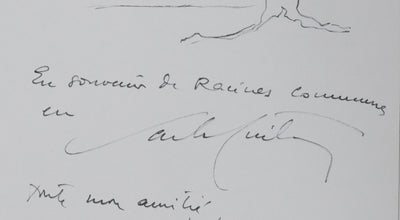 En souvenir de Racines communes
en
Toute mon amitié